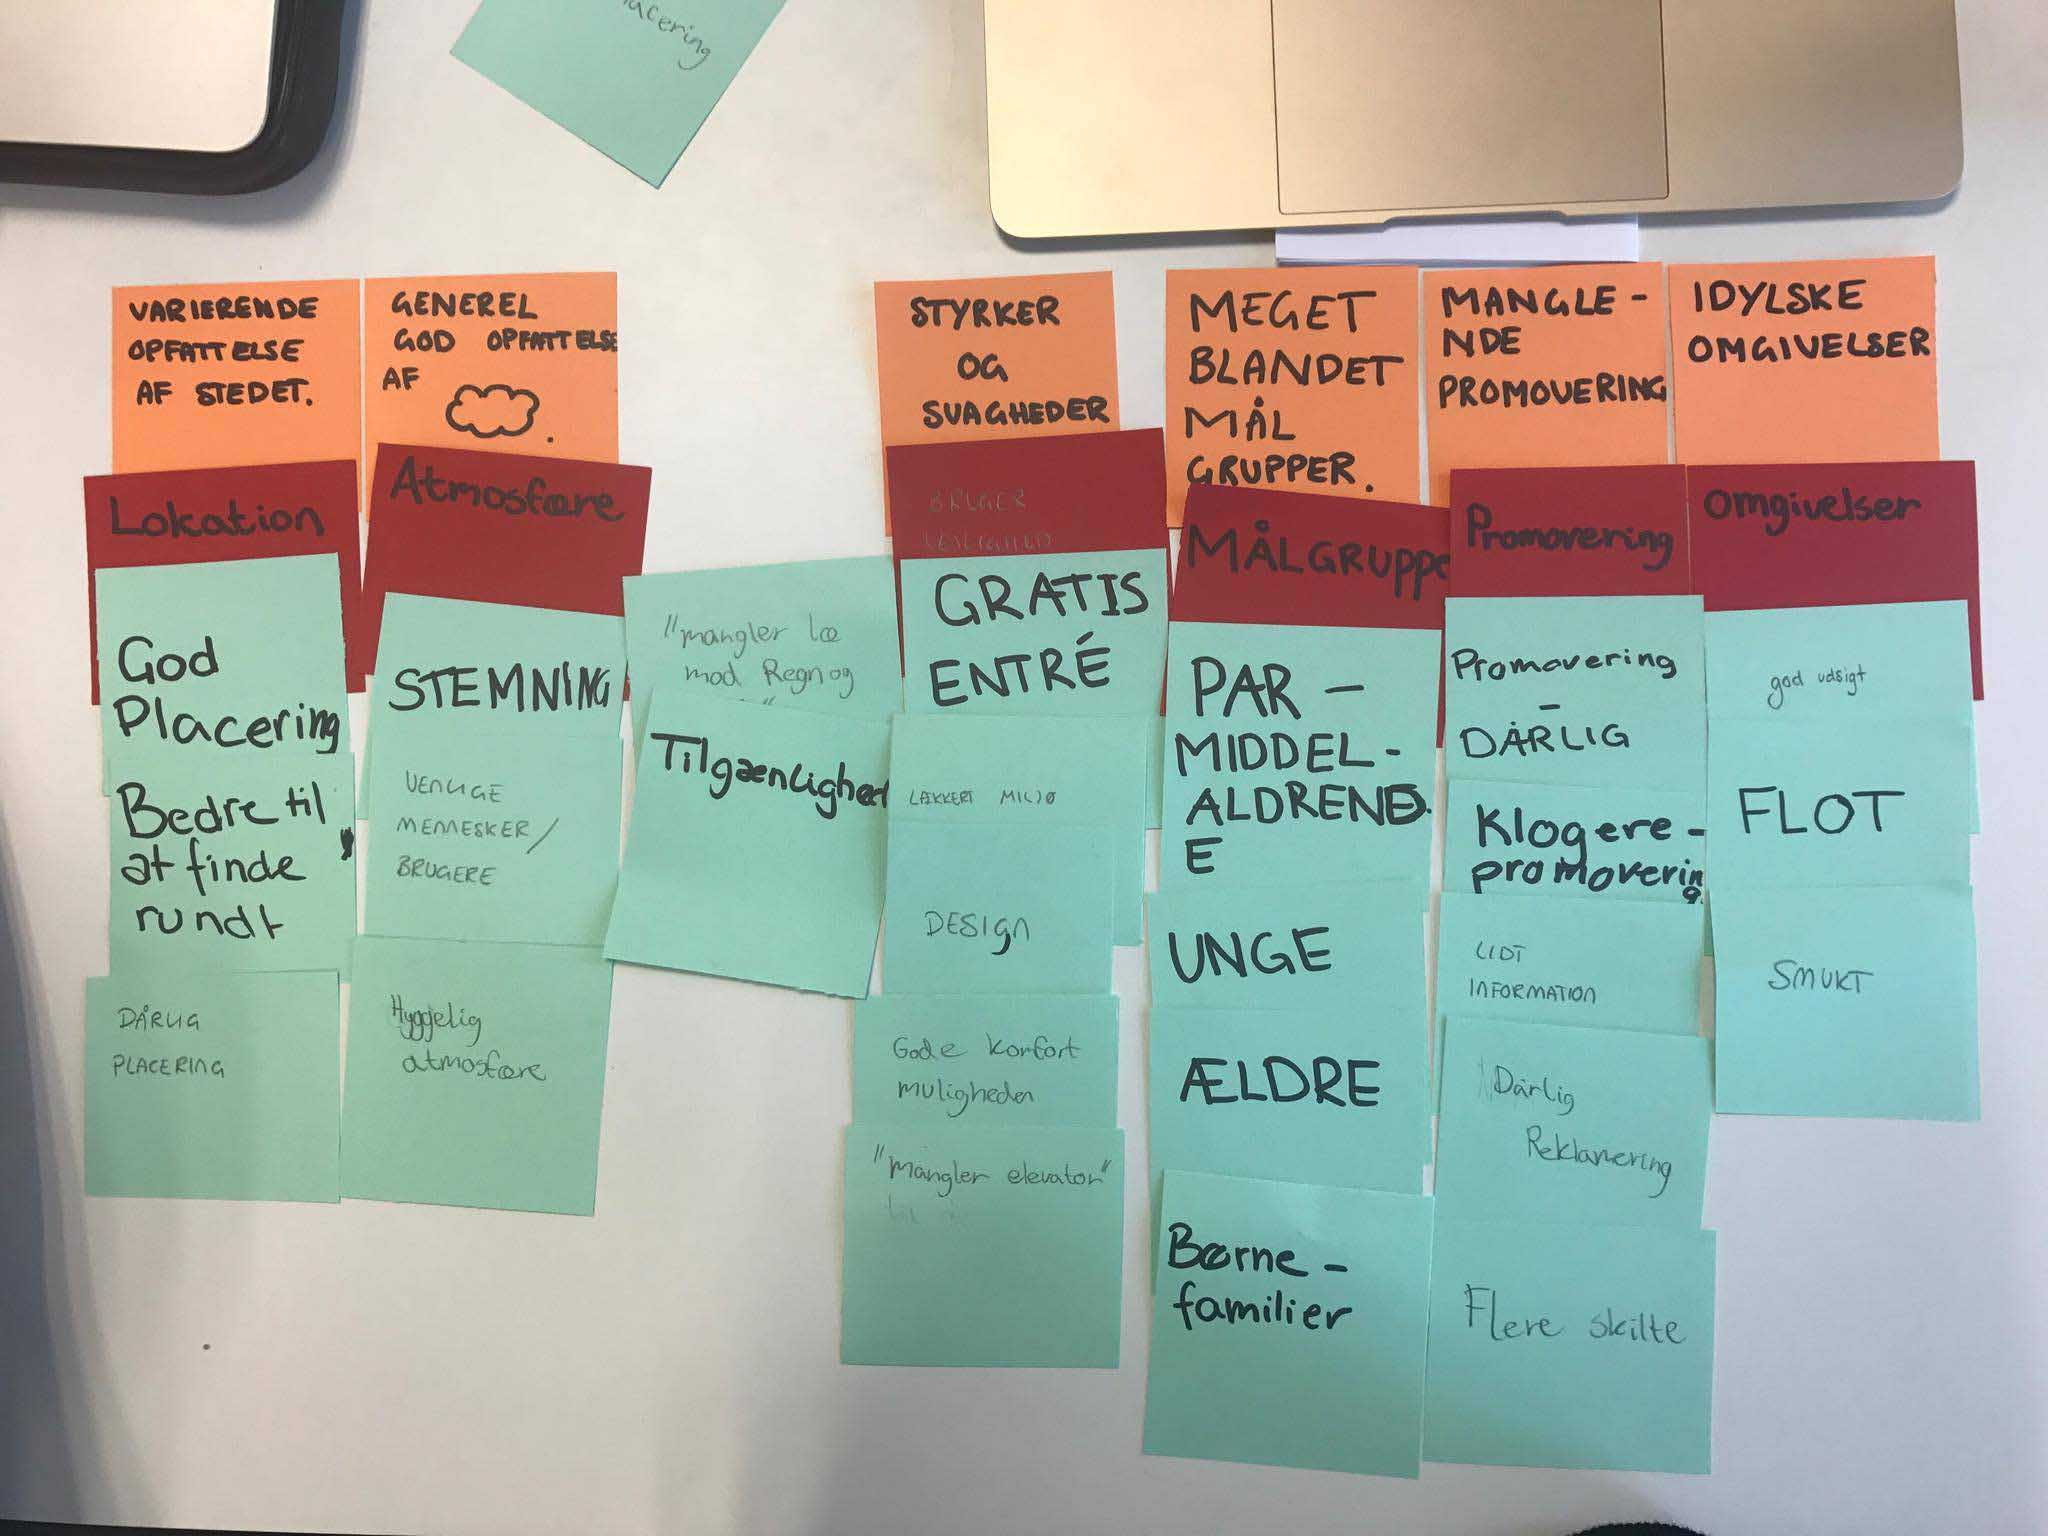 placering
VARIERENDE
OPFATTELSE
AF STEDET.
Lokation
God
Placering
Bedre til
at finde
rundt
DÅRLIG
PLACERING
GENEREL
GOD OPFATTELSE
AF
Atmosfære
STEMNING
VENLIGE
MENNESKER/
BRUGERE
Hyggelig
atmosfære
"mangler læ
mod Regn og
Tilgænlighed
STYRKER
OG
SVAGHEDER
BRUGER
GRATIS
ENTRÉ
LÆKKERT MILJØ
DESIGN
Gode komfort
muligheder
"Mangler elevator"
MEGET
BLANDET
MÅL
GRUPPER.
MÅLGRUPPE
PAR -
MIDDEL-
ALDREND
E
UNGE
ÆLDRE
Børne-
familier
MANGLE-
NDE
PROMOVERING
Promovering
Promovering
-
DÅRLIG
Klogere-
promovering
LIDT
INFORMATION
Dårlig
Reklamering
Flere skilte
IDYLSKE
OMGIVELSER
Omgivelser
god udsigt
FLOT
SMUKT